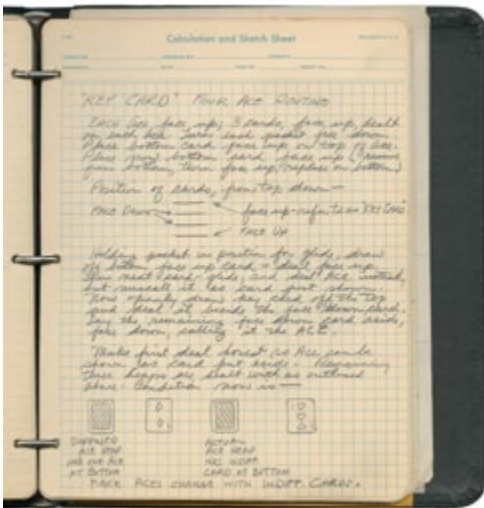 Calculation and Sketch Sheet
"KEY CARD" FOUR ACE ROUTINE
EACH Ace face up, 3 cards, face up, dealt
on each Ace. Turn each packet face down.
Place bottom card face up on top of Ace.
Place now bottom card face up (remove
from bottom, turn face up, replace on bottom)
Position of cards, from top down —
FACE DOWN
face up - refer to as "KEY CARD"
FACE UP
Holding packet in position for glide, draw
off bottom face up card & deal face up.
next card, glide and deal ACE instead,
but miscall it as card just shown.
Now openly draw key card off the top
and deal it beside the face down card.
Lay the remaining face down card aside,
face down, calling it the ACE.
Make first deal honest so Ace can be
shown as card put aside. Remaining
three heaps are dealt with as outlined
above. Condition now is —
SUPPOSED
ACE HEAP
HAS ONE ACE
AT BOTTOM
ACTUAL
ACE HEAP
HAS INDIFF.
CARD AT BOTTOM
MAKE ACES CHANGE WITH INDIFF. CARDS.